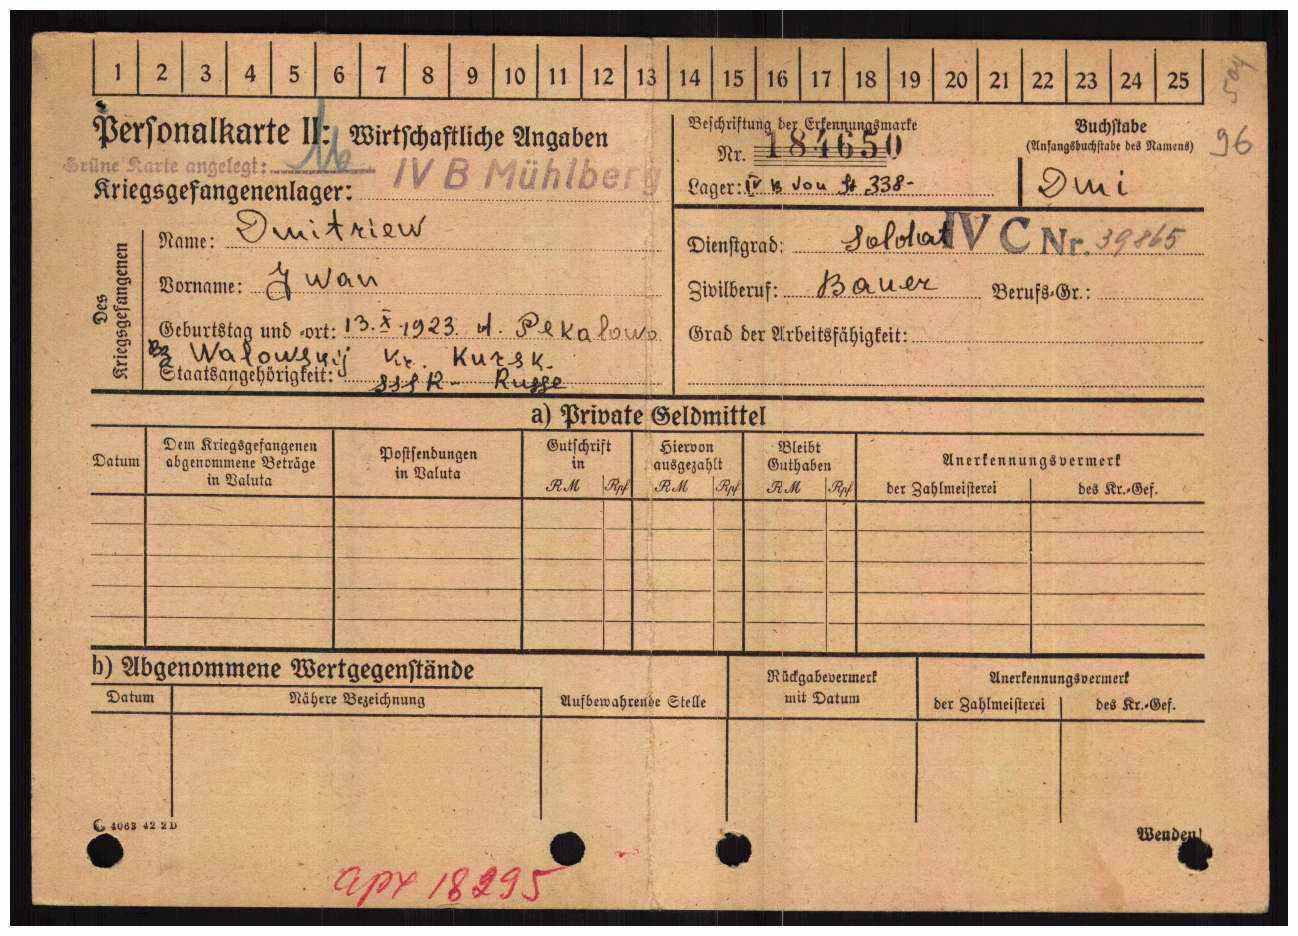 1 2 3 4 5 6 7 8 9 10 11 12 13 14 15 16 17 18 19 20 21 22 23 24 25
504
96
Personalkarte II: Wirtschaftliche Angaben
Grüne Karte angelegt:
IV B Mühlberg
Kriegsgefangenenlager:
Beschriftung der Erkennungsmarke
Nr. 184650
Lager: IV B von St 338-
Buchstabe
(Anfangsbuchstabe des Namens)
Dmi
Des Kriegsgefangenen
Name: Dmitriew
Vorname: Jwan
Geburtstag und -ort: 13.X.1923 d. Pekalowo
Bez Walowskij Kr. Kursk.
Staatsangehörigkeit: SSSR - Russe
Dienstgrad: Soldat
IV C Nr. 39865
Zivilberuf: Bauer Berufs-Gr.:
Grad der Arbeitsfähigkeit:
a) Private Geldmittel
Datum
Dem Kriegsgefangenen abgenommene Beträge in Valuta
Postsendungen in Valuta
Gutschrift in
RM Rpf
Hiervon ausgezahlt
RM Rpf
Bleibt Guthaben
RM Rpf
Anerkennungsvermerk
der Zahlmeisterei des Kr.-Gef.
b) Abgenommene Wertgegenstände
Datum Nähere Bezeichnung Aufbewahrende Stelle
Rückgabevermerk mit Datum
Anerkennungsvermerk
der Zahlmeisterei des Kr.-Gef.
4063 42 2 D
Wenden!
арх 18295